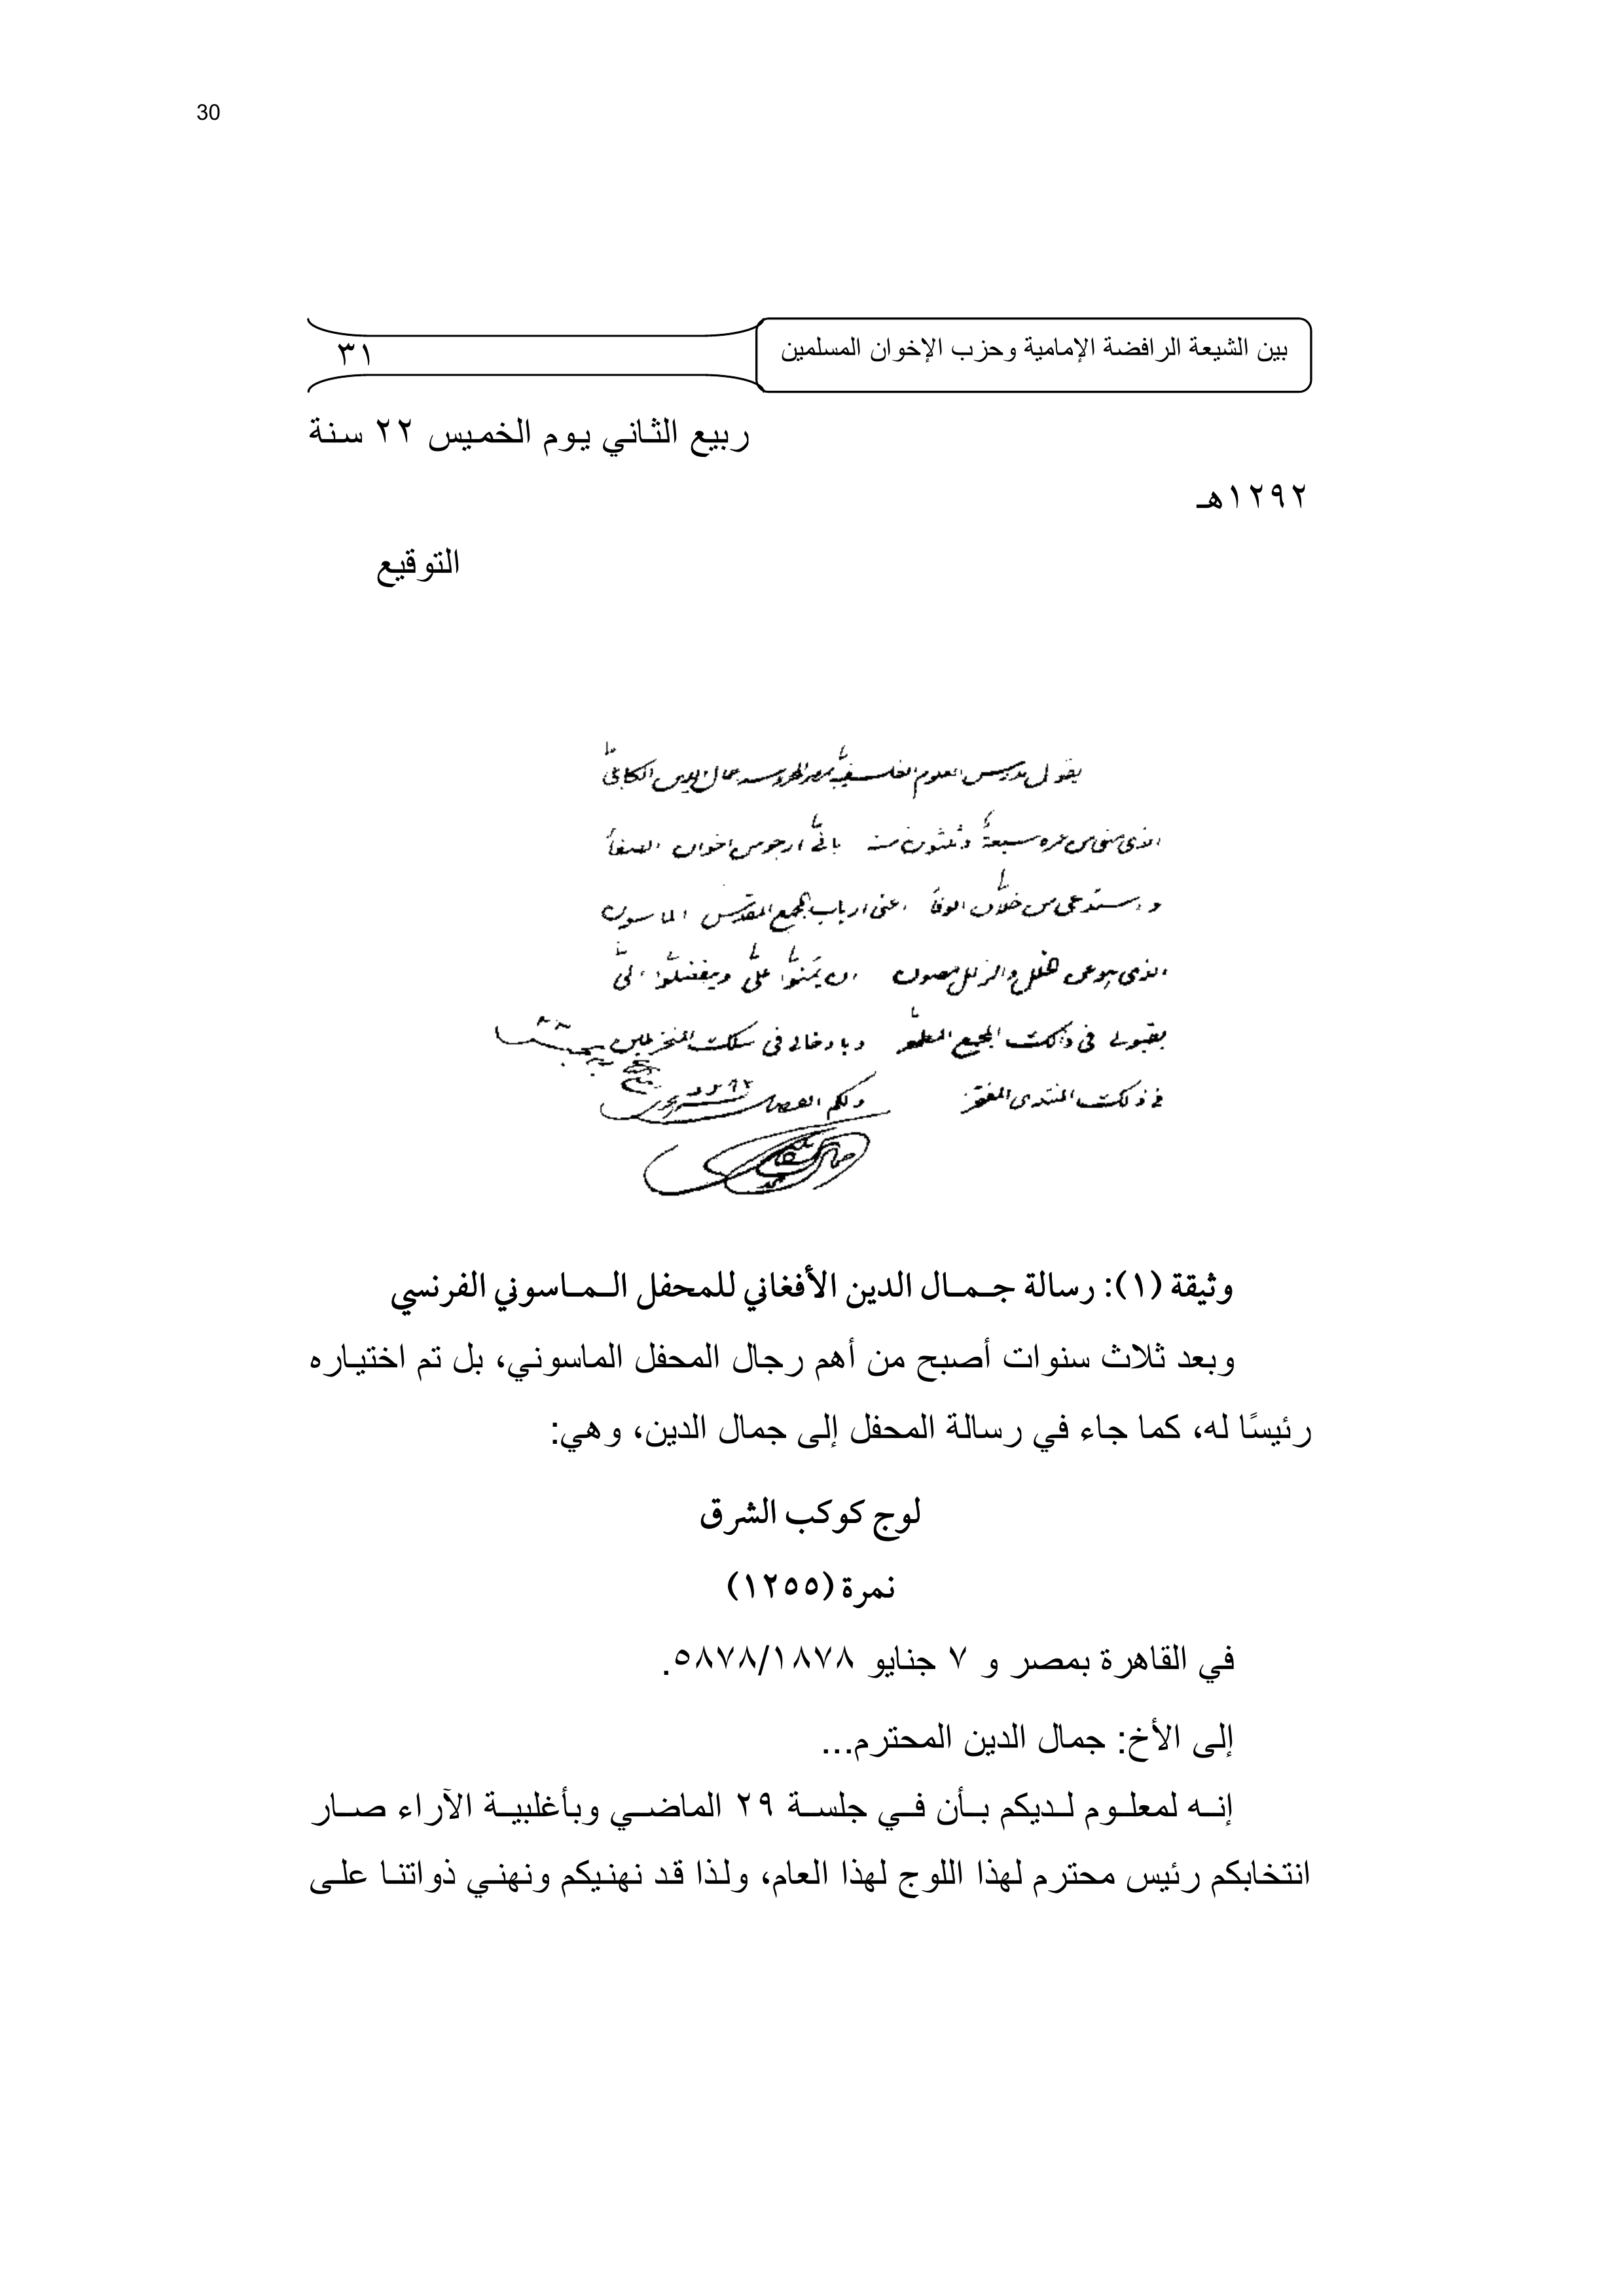 30
بين الشيعة الرافضة الإمامية وحزب الإخوان المسلمين
٣١
ربيع الثاني يوم الخميس ٢٢ سنة
١٢٩٢هـ
التوقيع
يقول مدرس العلوم الفلسفية بمصر المحروسة جمال الدين الكابلي
الذي مضى من عمره سبعة وثلثون سنة بأني أرجو من إخوان الصفا
واستدعي من خلان الوفا أعني أرباب المجمع المقدس الماسون
الذي هو عن الخلل والزلل مصون أن يمنوا علي ويتفضلوا إلي
بقبولي في ذلك المجمع المطهر وبإدخالي في سلك المنخرطين
في ذلك المنتدى المفتخر ولكم الفضل
وثيقة (١): رسالة جـمـال الدين الأفغاني للمحفل الـمـاسوني الفرنسي
وبعد ثلاث سنوات أصبح من أهم رجال المحفل الماسوني، بل تم اختياره
رئيسًا له، كما جاء في رسالة المحفل إلى جمال الدين، وهي:
لوج كوكب الشرق
نمرة (١٢٥٥)
في القاهرة بمصر و ٧ جنايو ٥٨٧٨/١٨٧٨.
إلى الأخ: جمال الدين المحترم...
إنه لمعلوم لديكم بأن في جلسة ٢٩ الماضي وبأغلبية الآراء صار
انتخابكم رئيس محترم لهذا اللوج لهذا العام، ولذا قد نهنيكم ونهني ذواتنا على